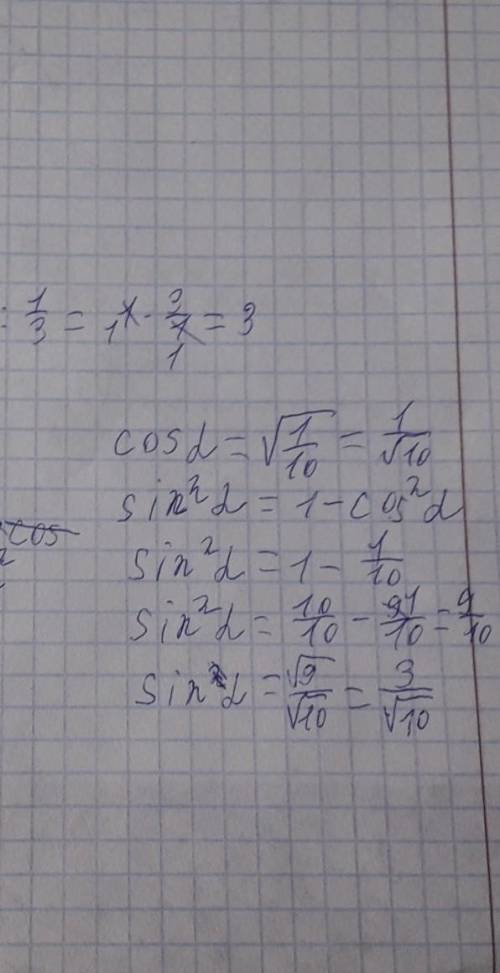 : 1/3 = 1 · 3/1 = 3
cos α = √(1/10) = 1/√10
sin²α = 1 - cos²α
cos
sin²α = 1 - 1/10
sin²α = 10/10 - 1/10 = 9/10
sin α = √9/√10 = 3/√10